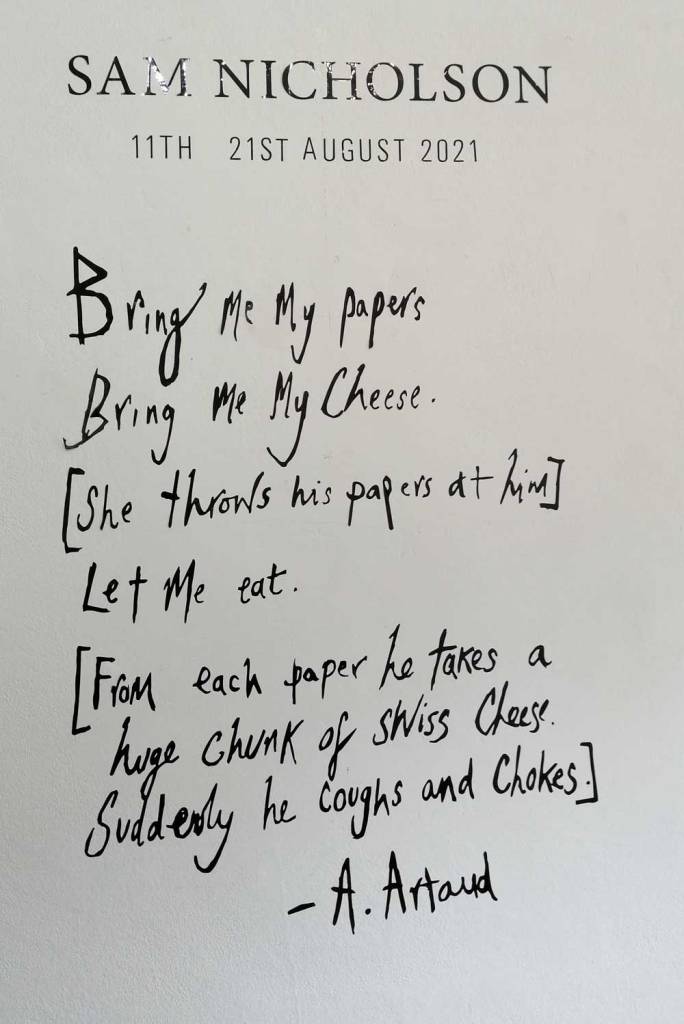 SAM NICHOLSON
11TH 21ST AUGUST 2021
Bring Me My papers
Bring Me My Cheese.
[She throws his papers at him]
Let Me eat.
[From each paper he takes a
huge chunk of swiss Cheese.
Suddenly he coughs and Chokes.]
- A. Artaud